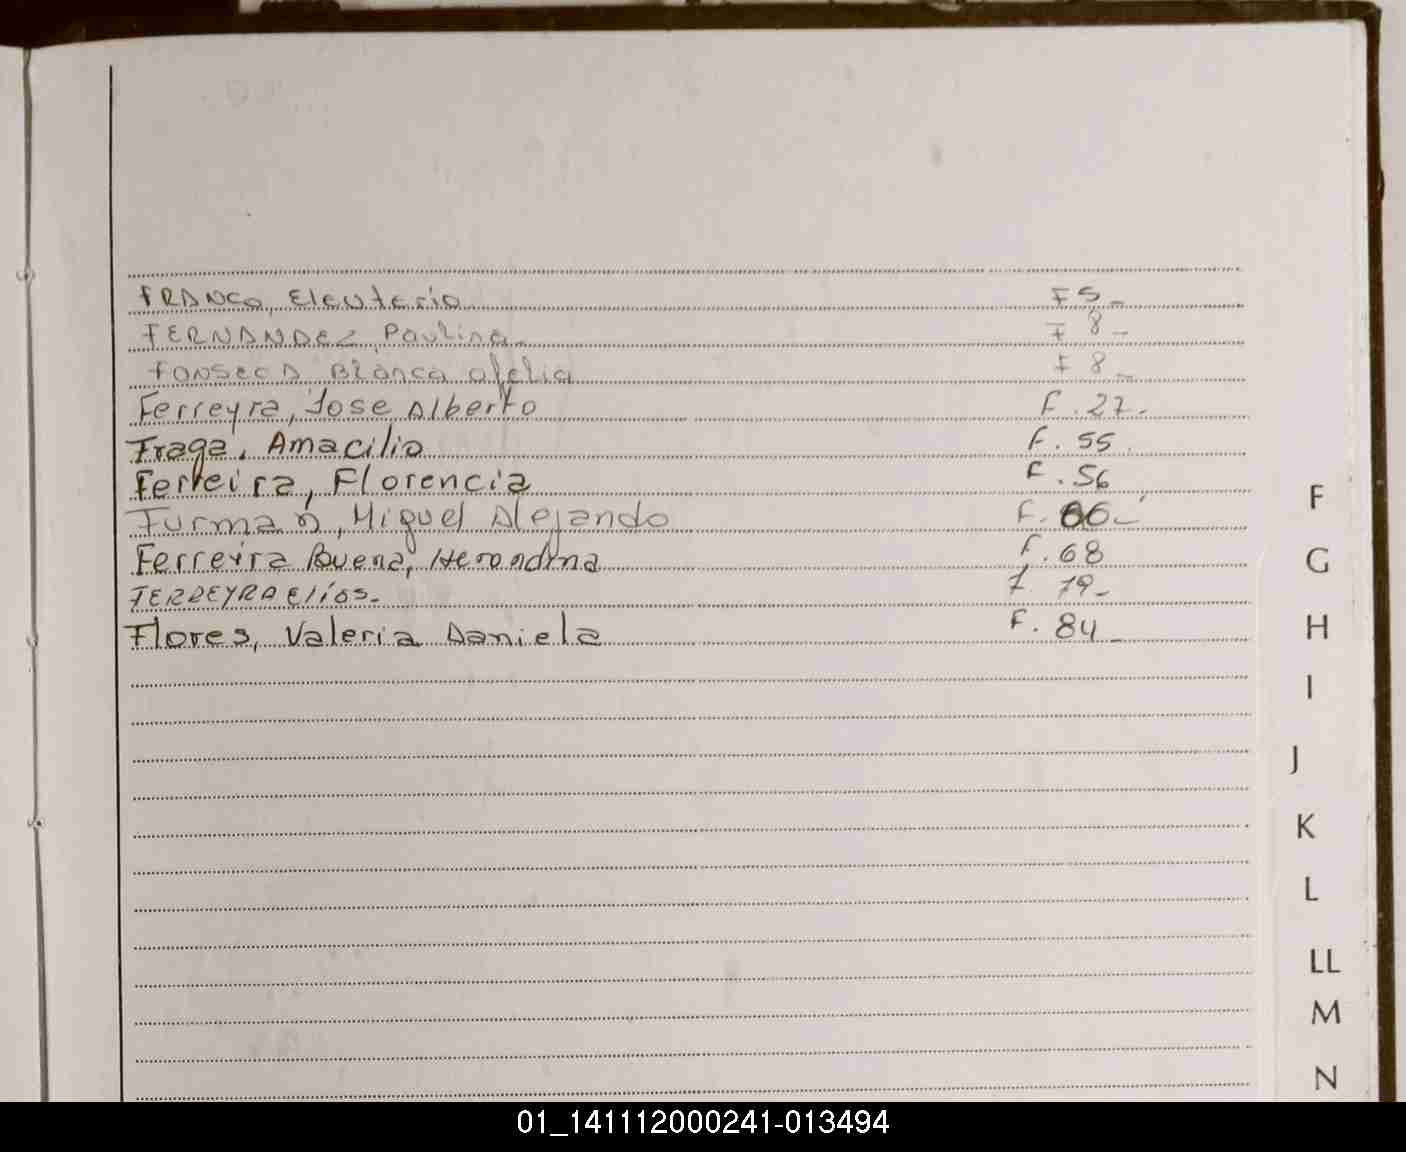 FRANCO, Eleuterio F 5_
FERNANDEZ, Paulina_ F 8_
FONSECA Blanca Ofelia F 8_
Ferreyra, Jose Alberto F. 27.
Fraga, Amacilio F. 55.
Ferreira, Florencia F. 56
Furman, Miguel Alejando F. 66_
Ferreira Buena, Herondina F. 68
FERREYRA Elías_ F 79_
Flores, Valeria Daniela F. 84_
F
G
H
I
J
K
L
LL
M
N
01_141112000241-013494